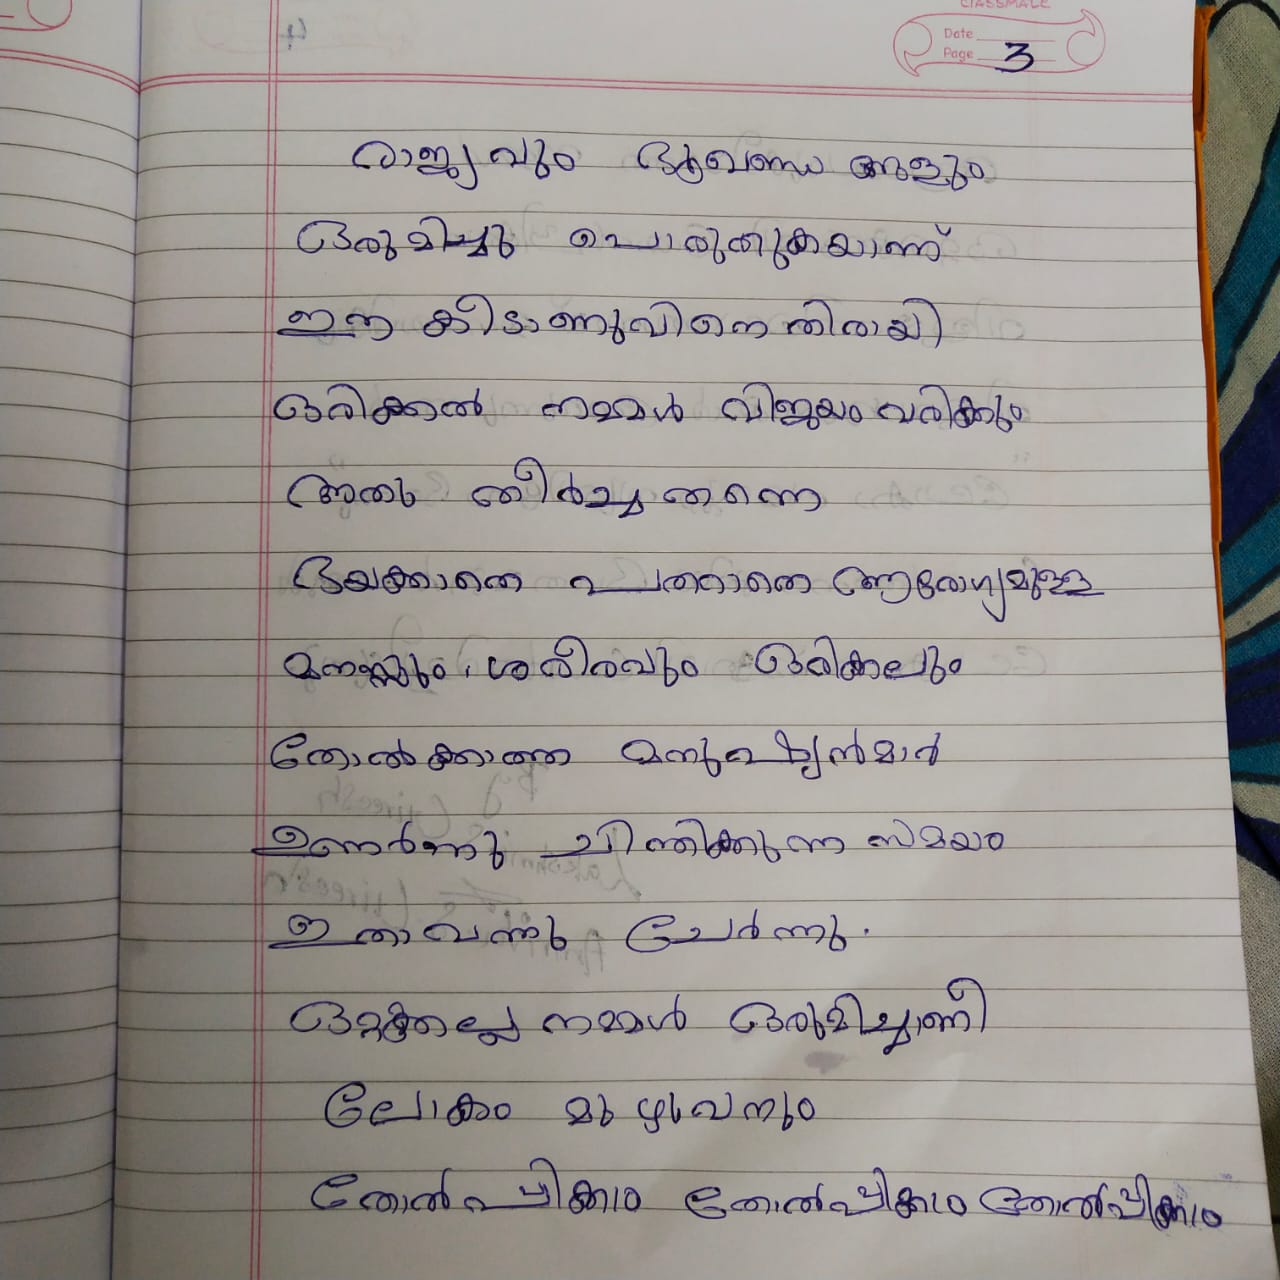 CLASSMATE
Date
Page 3
രാജ്യവും ഭൂഖണ്ഡങ്ങളും
ഒരുമിച്ചു പൊരുതുകയാണ്
ഈ കീടാണുവിനെതിരായി
ഒരിക്കൽ നമ്മൾ വിജയം വരിക്കും
അതു തീർച്ച തന്നെ
ഭയക്കാതെ പതറാതെ ആരോഗ്യമുള്ള
മനസ്സും ശരീരവും ഒരിക്കലും
തോൽക്കാത്ത മനുഷ്യൻമാർ
ഉണർന്നു ചിന്തിക്കുന്ന സമയം
ഇതാ വന്നു ചേർന്നു.
ഒറ്റക്കല്ലേ നമ്മൾ ഒരുമിച്ചാണീ
ലോകം മുഴുവനും
തോൽപ്പിക്കാം തോൽപ്പിക്കാം തോൽപ്പിക്കാം